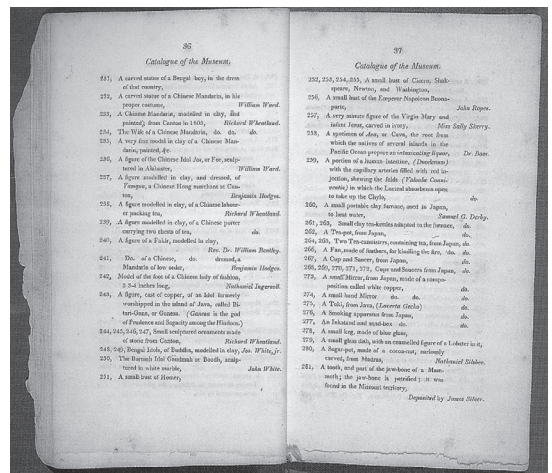 36
Catalogue of the Museum.
231, A carved statue of a Bengal boy, in the dress
of that country,
232, A carved statue of a Chinese Mandarin, in his
proper costume, William Ward.
233, A Chinese Mandarin, modelled in clay, (and
painted); from Canton in 1800, Richard Wheatland.
234, The Wife of a Chinese Mandarin, do. do. do.
235, A very fine model in clay of a Chinese Man-
darin, painted, &c.
236, A figure of the Chinese Idol Jos, or Foe, sculp-
tured in Alabaster, William Ward.
237, A figure modelled in clay, and dressed, of
Yamqua, a Chinese Hong merchant at Can-
ton, Benjamin Hodges.
238, A figure modelled in clay, of a Chinese labour-
er packing tea, Richard Wheatland.
239, A figure modelled in clay, of a Chinese porter
carrying two chests of tea, do.
240, A figure of a Fakir, modelled in clay,
Rev. Dr. William Bentley.
241, Do. of a Chinese, do. dressed, a
Mandarin of low order, Benjamin Hodges.
242, Model of the foot of a Chinese lady of fashion,
2 3-4 inches long, Nathaniel Ingersoll.
243, A figure, cast of copper, of an Idol formerly
worshipped in the island of Java, called Bi-
tari-Gana, or Ganesa. (Ganesa is the god
of Prudence and Sagacity among the Hindoos.)
244, 245, 246, 247, Small sculptured ornaments made
of stone from Canton, Richard Wheatland.
248, 249, Bengal Idols, of Buddha, modelled in clay, Jos. White, jr.
250, The Barmah Idol Gaudmah or Boodh, sculp-
tured in white marble, John White.
251, A small bust of Homer,
37
Catalogue of the Museum.
252, 253, 254, 255, A small bust of Cicero, Shak-
speare, Newton, and Washington,
256, A small bust of the Emperor Napoleon Buona-
parte, John Ropes.
257, A very minute figure of the Virgin Mary and
infant Jesus, carved in ivory, Miss Sally Skerry.
258, A specimen of Ava, or Cava, the root from
which the natives of several islands in the
Pacific Ocean prepare an intoxicating liquor, Dr. Bass.
259, A portion of a human intestine, (Duodenum)
with the capillary arteries filled with red in-
jection, shewing the folds (Valvulæ Conni-
ventiæ) in which the Lacteal absorbents open
to take up the Chyle, do.
260, A small portable clay furnace, used in Japan,
to heat water, Samuel G. Derby.
261, 262, Small clay tea-kettles adapted to the furnace, do.
263, A Tea-pot, from Japan, do.
264, 265, Two Tea-cannisters, containing tea, from Japan, do.
266, A Fan, made of feathers, for kindling the fire, do.
267, A Cup and Saucer, from Japan, do.
268, 269, 270, 271, 272, Cups and Saucers from Japan, do.
273, A small Mirror, from Japan, made of a compo-
sition called white copper, do.
274, A small hand Mirror do. do. do.
275, A Toki, from Java, (Lacerta Gecko) do.
276, A Smoking apparatus from Japan, do.
277, An Inkstand and sand-box do. do.
278, A small keg, made of blue glass,
279, A small glass dish, with an enamelled figure of a Lobster in it,
280, A Sugar-pot, made of a cocoa-nut, curiously
carved, from Madras, Nathaniel Silsbee.
281, A tooth, and part of the jaw-bone of a Mam-
moth; the jaw-bone is petrified; it was
found in the Missouri territory,
Deposited by James Silver.